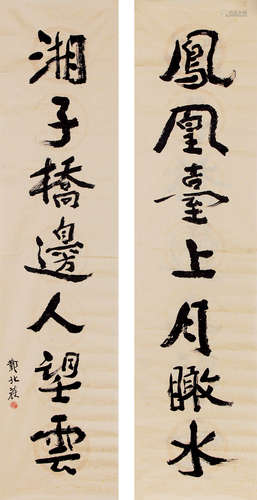 鳳凰臺上月瞰水
湘子橋邊人望雲